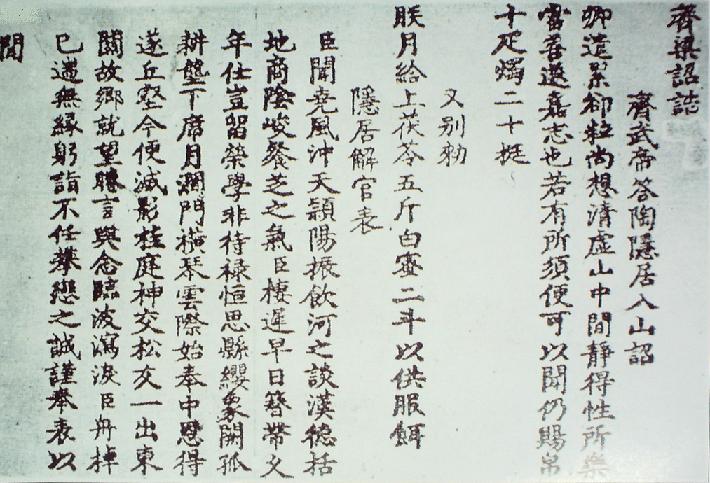 齊梁詔誥
齊武帝答陶隱居入山詔
卿遺累却粒尚想清虛山中閒靜得性所樂
當善遂嘉志也若有所須便可以聞仍賜帛
十疋燭二十挺
又別勑
朕月給上茯苓五斤白蜜二斗以供服餌
隱居解官表
臣聞堯風沖天潁陽振飲河之談漢德括
地商陰峻餐芝之氣臣棲遲早日簪帶久
年仕豈留榮學非待祿恒思縣纓象闕孤
耕壟下席月澗門橫琴雲際始奉中恩得
遂丘壑今便滅影桂庭神交松友一出東
關故鄉就望瞻言與念臨波瀉淚臣舟棹
已遄無緣躬詣不任攀戀之誠謹奉表以
聞